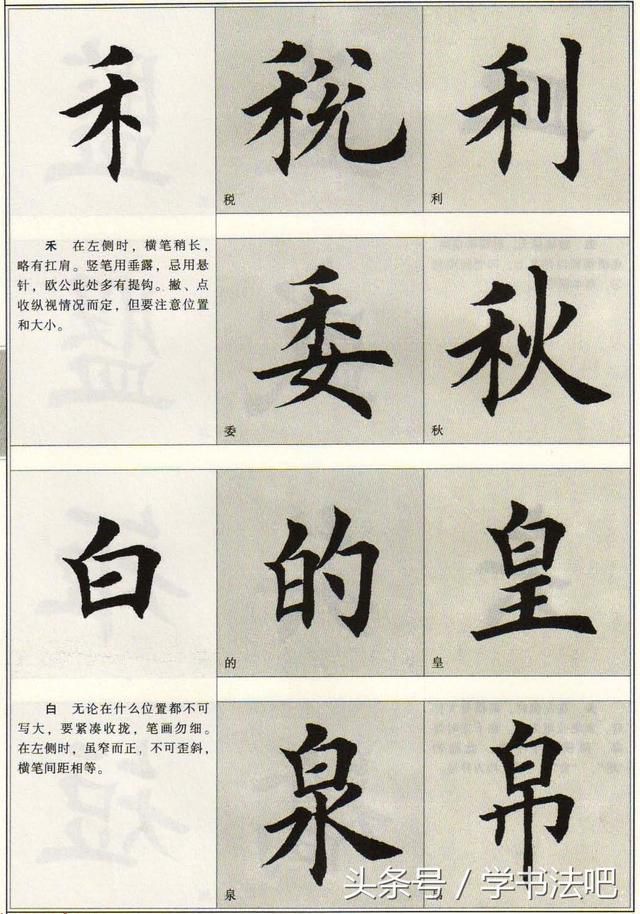 禾 税 利
税 利
禾 在左侧时，横笔稍长，
略有扛肩。竖笔用垂露，忌用悬
针，欧公此处多有提钩。撇、点
收纵视情况而定，但要注意位置
和大小。
委 秋
委 秋
白 的 皇
的 皇
白 无论在什么位置都不可
写大，要紧凑收拢，笔画勿细。
在左侧时，虽窄而正，不可歪斜，
横笔间距相等。
泉 帛
泉 帛
头条号 / 学书法吧